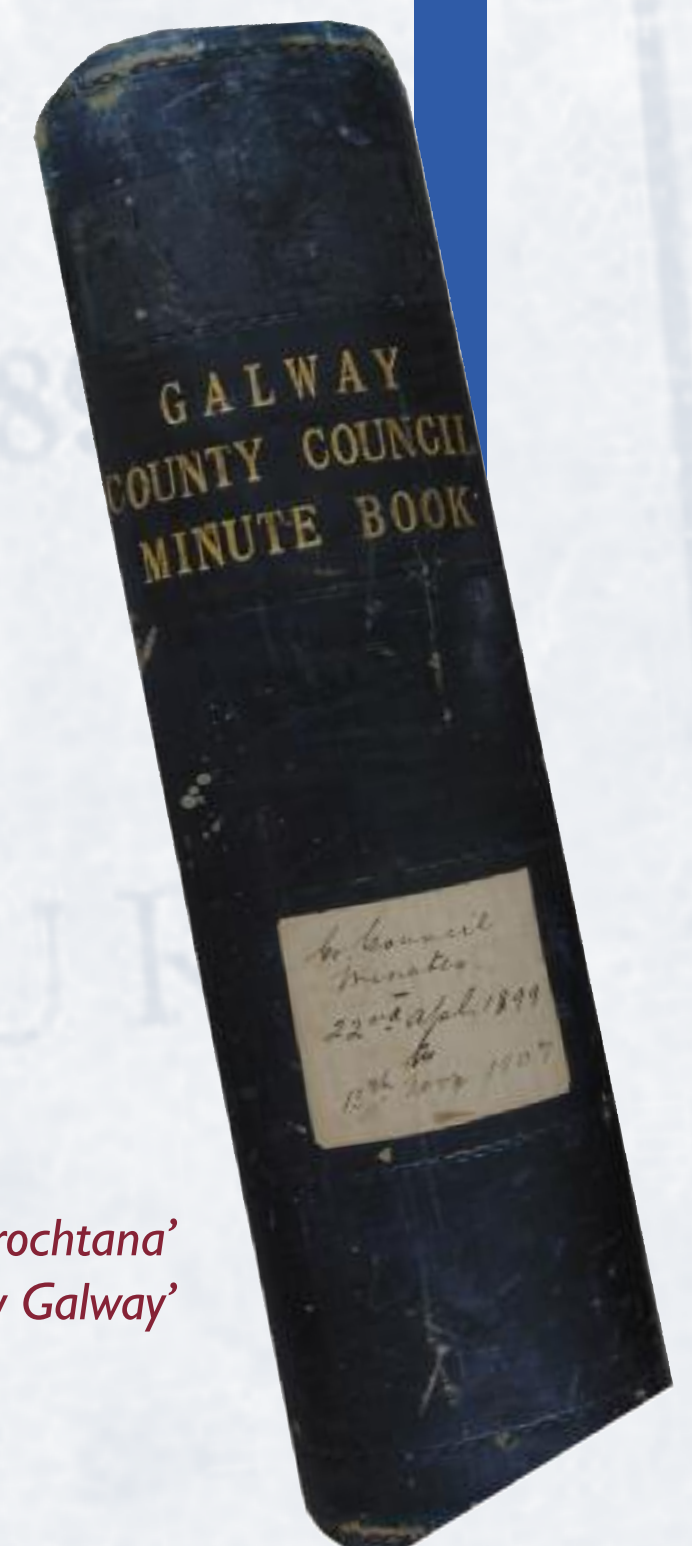 GALWAY
COUNTY COUNCIL
MINUTE BOOK
Co Council
Minutes
22nd April 1899
to
13th Novr 1907
rochtana’
Galway’